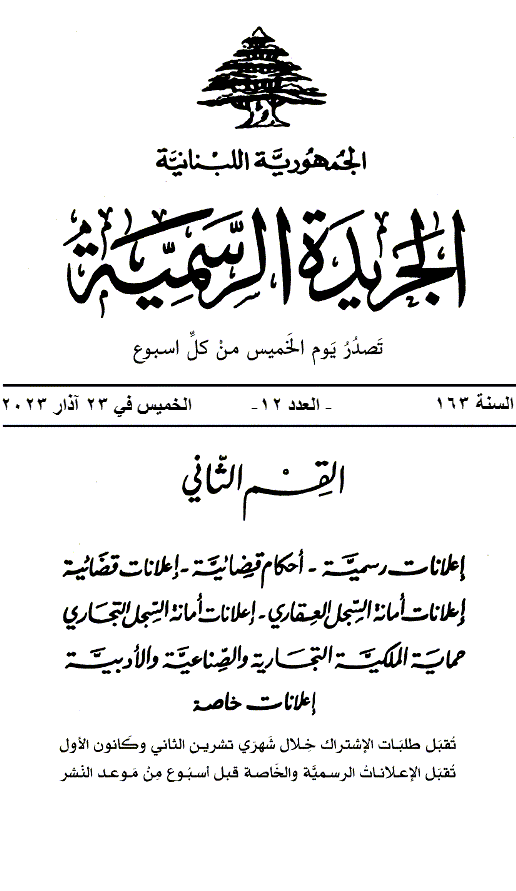 الجمهورية اللبنانية
الجريدة الرسمية
تَصدُرُ يَوم الخَميس منْ كلِّ اسبوع
السنة ١٦٣ - العدد ١٢- الخميس في ٢٣ آذار ٢٠٢٣
القِسْم الثَّاني
إعلانات رسميَّة - أحكام قضائيَّة - إعلانات قضائية
إعلانات أمانة السِّجل العقاري - إعلانات أمانة السِّجل التجاري
حماية الملكيَّة التجارية والصِّناعيَّة والأدبيَّة
إعلانات خاصة
تُقبَل طلبَات الإشتراك خلال شَهرَي تشرين الثاني وكَانون الأول
تُقبَل الإعلاناتُ الرسميَّة والخَاصة قبل أسبُوع مِنْ مَوعد النَشر